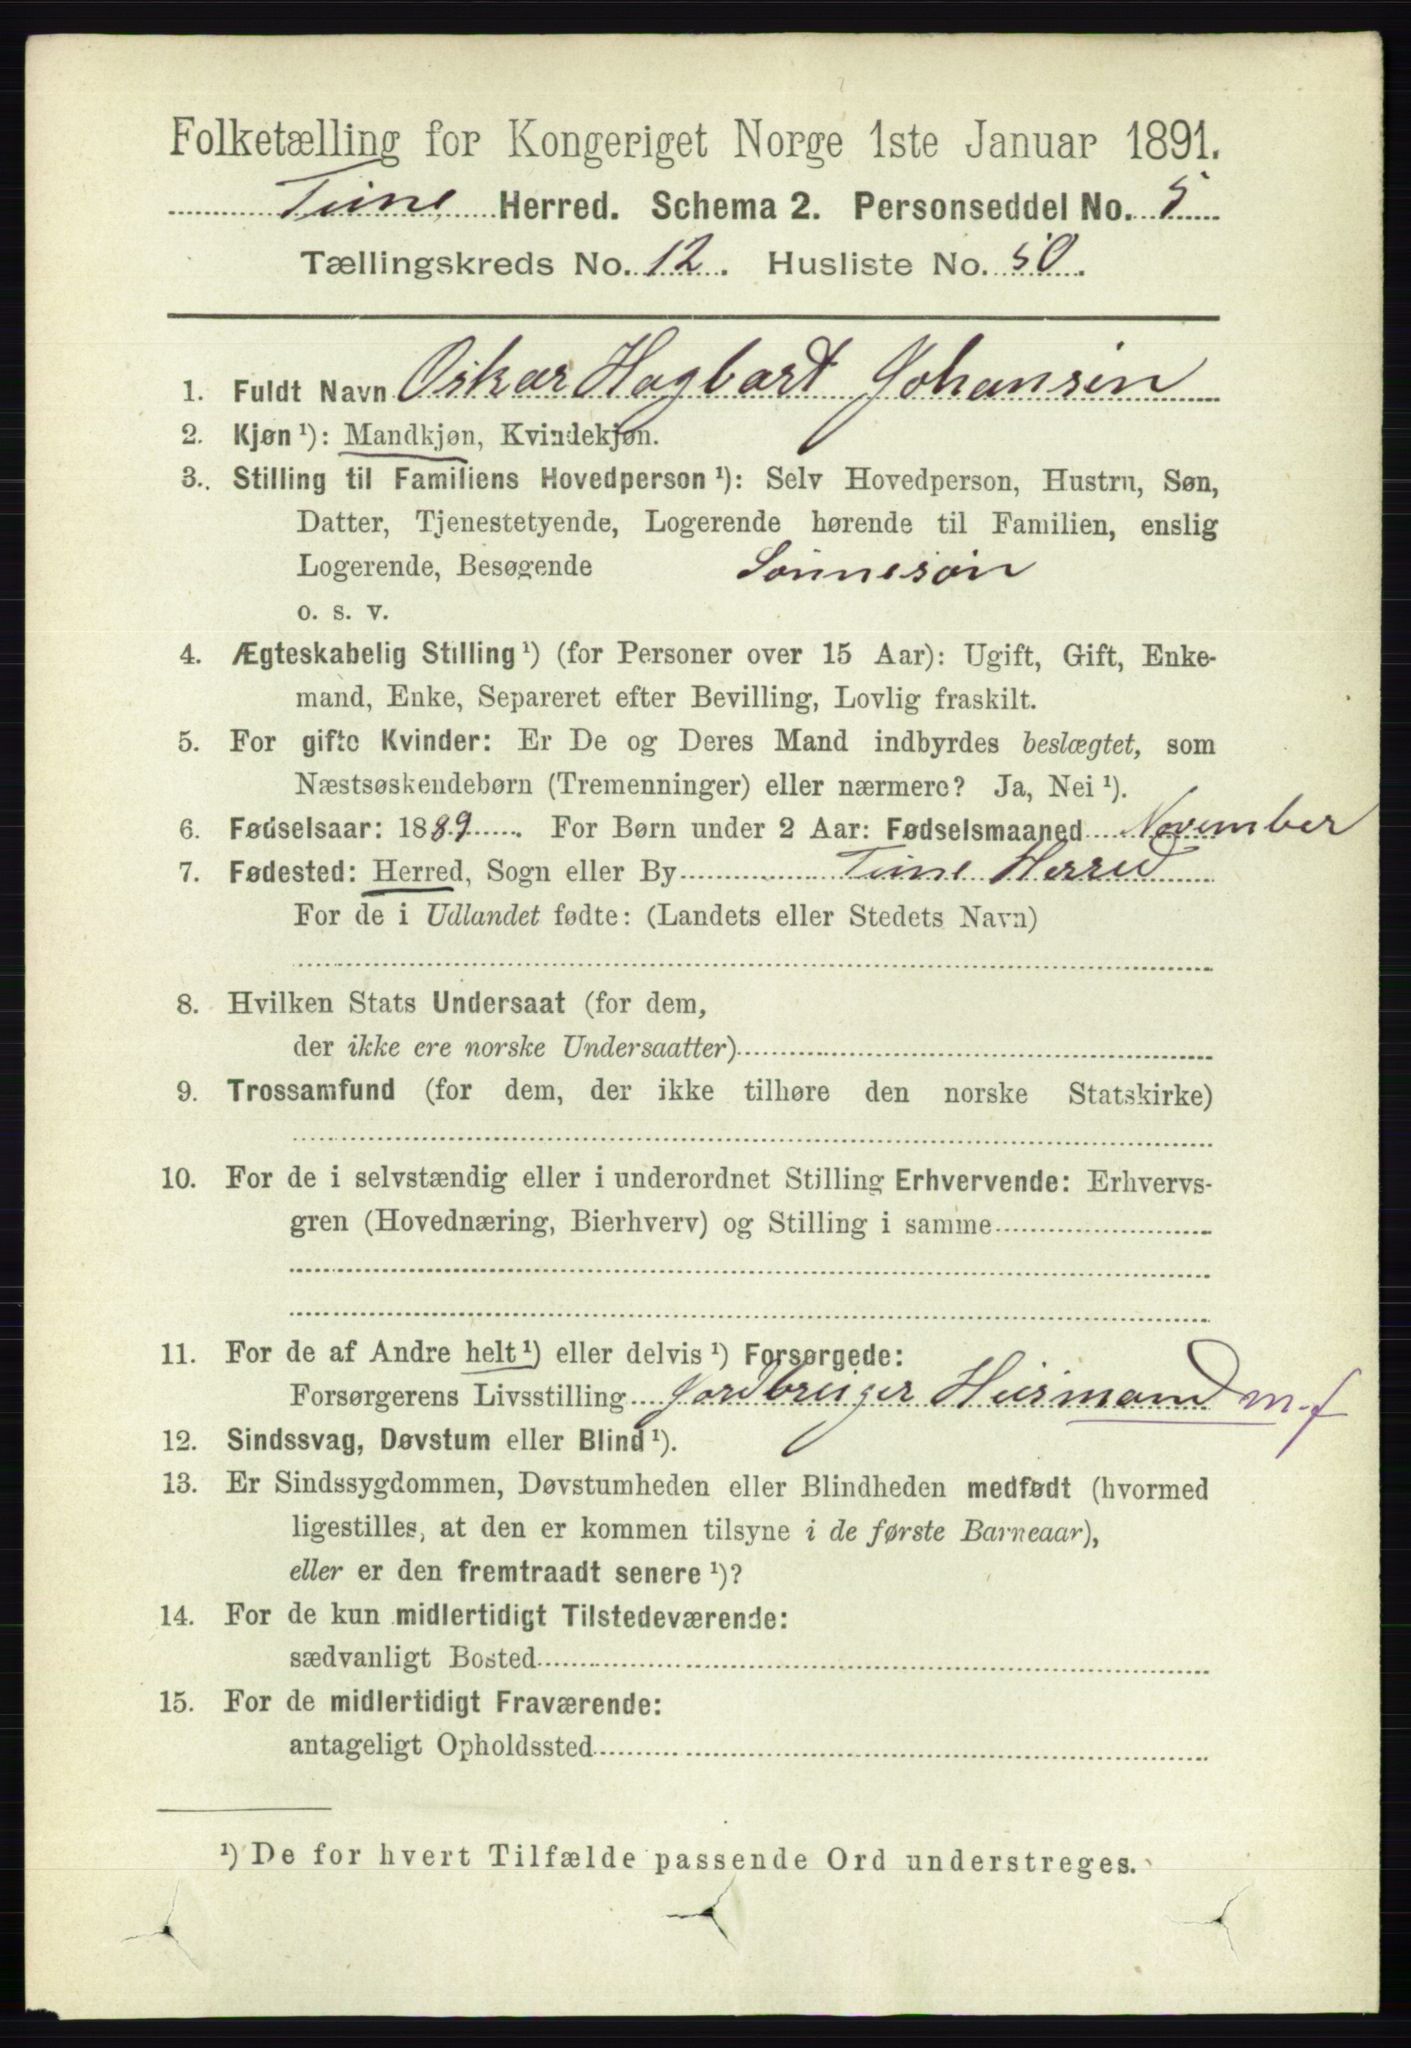 Folketælling for Kongeriget Norge 1ste Januar 1891.
Tune Herred. Schema 2. Personseddel No. 5
Tællingskreds No. 12. Husliste No. 50.
1. Fuldt Navn Oskar Hagbart Johansen
2. Kjøn ¹): Mandkjøn, Kvindekjøn.
3. Stilling til Familiens Hovedperson ¹): Selv Hovedperson, Hustru, Søn,
Datter, Tjenestetyende, Logerende hørende til Familien, enslig
Logerende, Besøgende Sønnesøn
o. s. v.
4. Ægteskabelig Stilling ¹) (for Personer over 15 Aar): Ugift, Gift, Enke-
mand, Enke, Separeret efter Bevilling, Lovlig fraskilt.
5. For gifte Kvinder: Er De og Deres Mand indbyrdes beslægtet, som
Næstsøskendebørn (Tremenninger) eller nærmere? Ja, Nei ¹).
6. Fødselsaar: 1889. For Børn under 2 Aar: Fødselsmaaned November
7. Fødested: Herred, Sogn eller By Tune Herred
For de i Udlandet fødte: (Landets eller Stedets Navn)
8. Hvilken Stats Undersaat (for dem,
der ikke ere norske Undersaatter)
9. Trossamfund (for dem, der ikke tilhøre den norske Statskirke)
10. For de i selvstændig eller i underordnet Stilling Erhvervende: Erhvervs-
gren (Hovednæring, Bierhverv) og Stilling i samme
11. For de af Andre helt ¹) eller delvis ¹) Forsørgede:
Forsørgerens Livsstilling Jordbruger Husmand m.f
12. Sindssvag, Døvstum eller Blind ¹).
13. Er Sindssygdommen, Døvstumheden eller Blindheden medfødt (hvormed
ligestilles, at den er kommen tilsyne i de første Barneaar),
eller er den fremtraadt senere ¹)?
14. For de kun midlertidigt Tilstedeværende:
sædvanligt Bosted
15. For de midlertidigt Fraværende:
antageligt Opholdssted
¹) De for hvert Tilfælde passende Ord understreges.